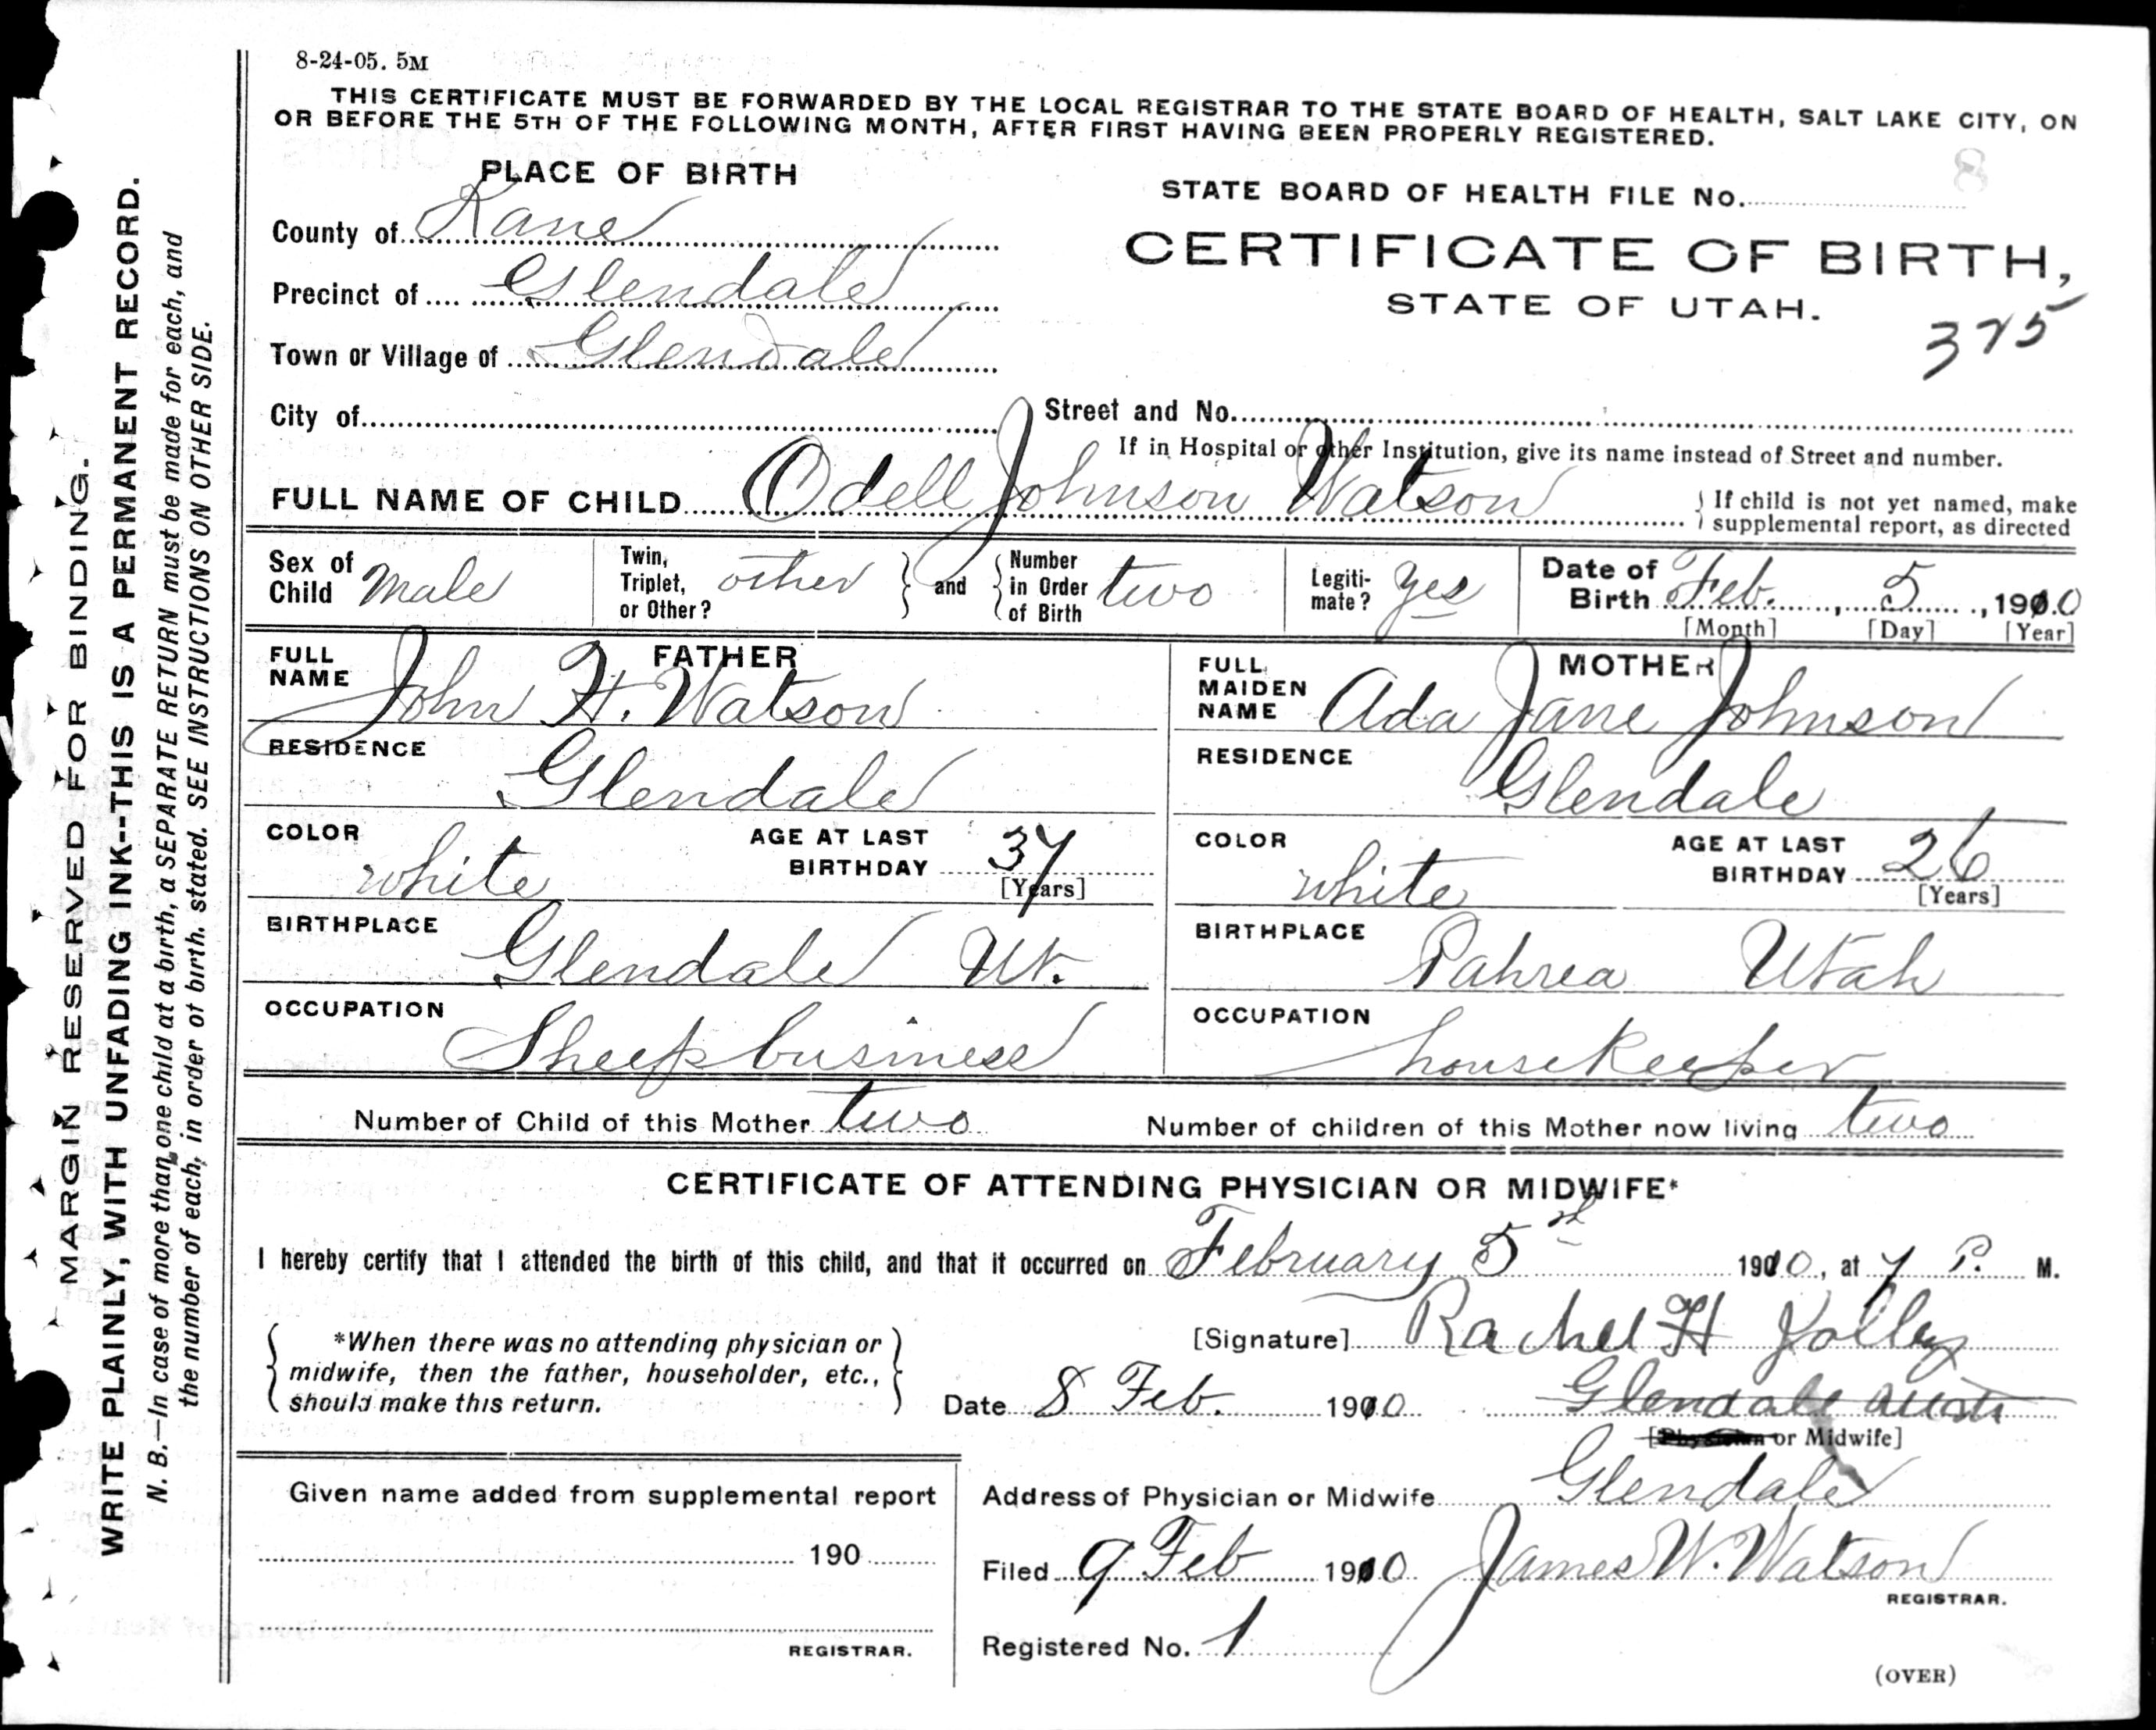 8-24-05. 5M
THIS CERTIFICATE MUST BE FORWARDED BY THE LOCAL REGISTRAR TO THE STATE BOARD OF HEALTH, SALT LAKE CITY, ON
OR BEFORE THE 5TH OF THE FOLLOWING MONTH, AFTER FIRST HAVING BEEN PROPERLY REGISTERED.
PLACE OF BIRTH
STATE BOARD OF HEALTH FILE No. 8
County of Kane
CERTIFICATE OF BIRTH,
Precinct of Glendale
STATE OF UTAH.
375
Town or Village of Glendale
City of
Street and No.
If in Hospital or other Institution, give its name instead of Street and number.
FULL NAME OF CHILD Odell Johnson Watson
If child is not yet named, make
supplemental report, as directed
Sex of Child Male
Twin, Triplet, or Other? other and Number in Order of Birth two
Legiti-mate? Yes
Date of Birth Feb. 5, 1910
[Month] [Day] [Year]
FATHER
FULL NAME John H. Watson
RESIDENCE Glendale
COLOR white
AGE AT LAST BIRTHDAY 37
[Years]
BIRTHPLACE Glendale Ut.
OCCUPATION Sheep business
MOTHER
FULL MAIDEN NAME Ada Jane Johnson
RESIDENCE Glendale
COLOR white
AGE AT LAST BIRTHDAY 26
[Years]
BIRTHPLACE Pahrea Utah
OCCUPATION housekeeper
Number of Child of this Mother two
Number of children of this Mother now living two
CERTIFICATE OF ATTENDING PHYSICIAN OR MIDWIFE*
I hereby certify that I attended the birth of this child, and that it occurred on February 5 1910, at 7 P. M.
*When there was no attending physician or
midwife, then the father, householder, etc.,
should make this return.
[Signature] Rachel H Jolley
Date 8 Feb. 1910 Glendale
[Physician or Midwife]
Given name added from supplemental report
190
REGISTRAR.
Address of Physician or Midwife Glendale
Filed 9 Feb 1910 James W. Watson
REGISTRAR.
Registered No. 1
(OVER)
MARGIN RESERVED FOR BINDING.
WRITE PLAINLY, WITH UNFADING INK--THIS IS A PERMANENT RECORD.
N. B.—In case of more than one child at a birth, a SEPARATE RETURN must be made for each, and
the number of each, in order of birth, stated. SEE INSTRUCTIONS ON OTHER SIDE.